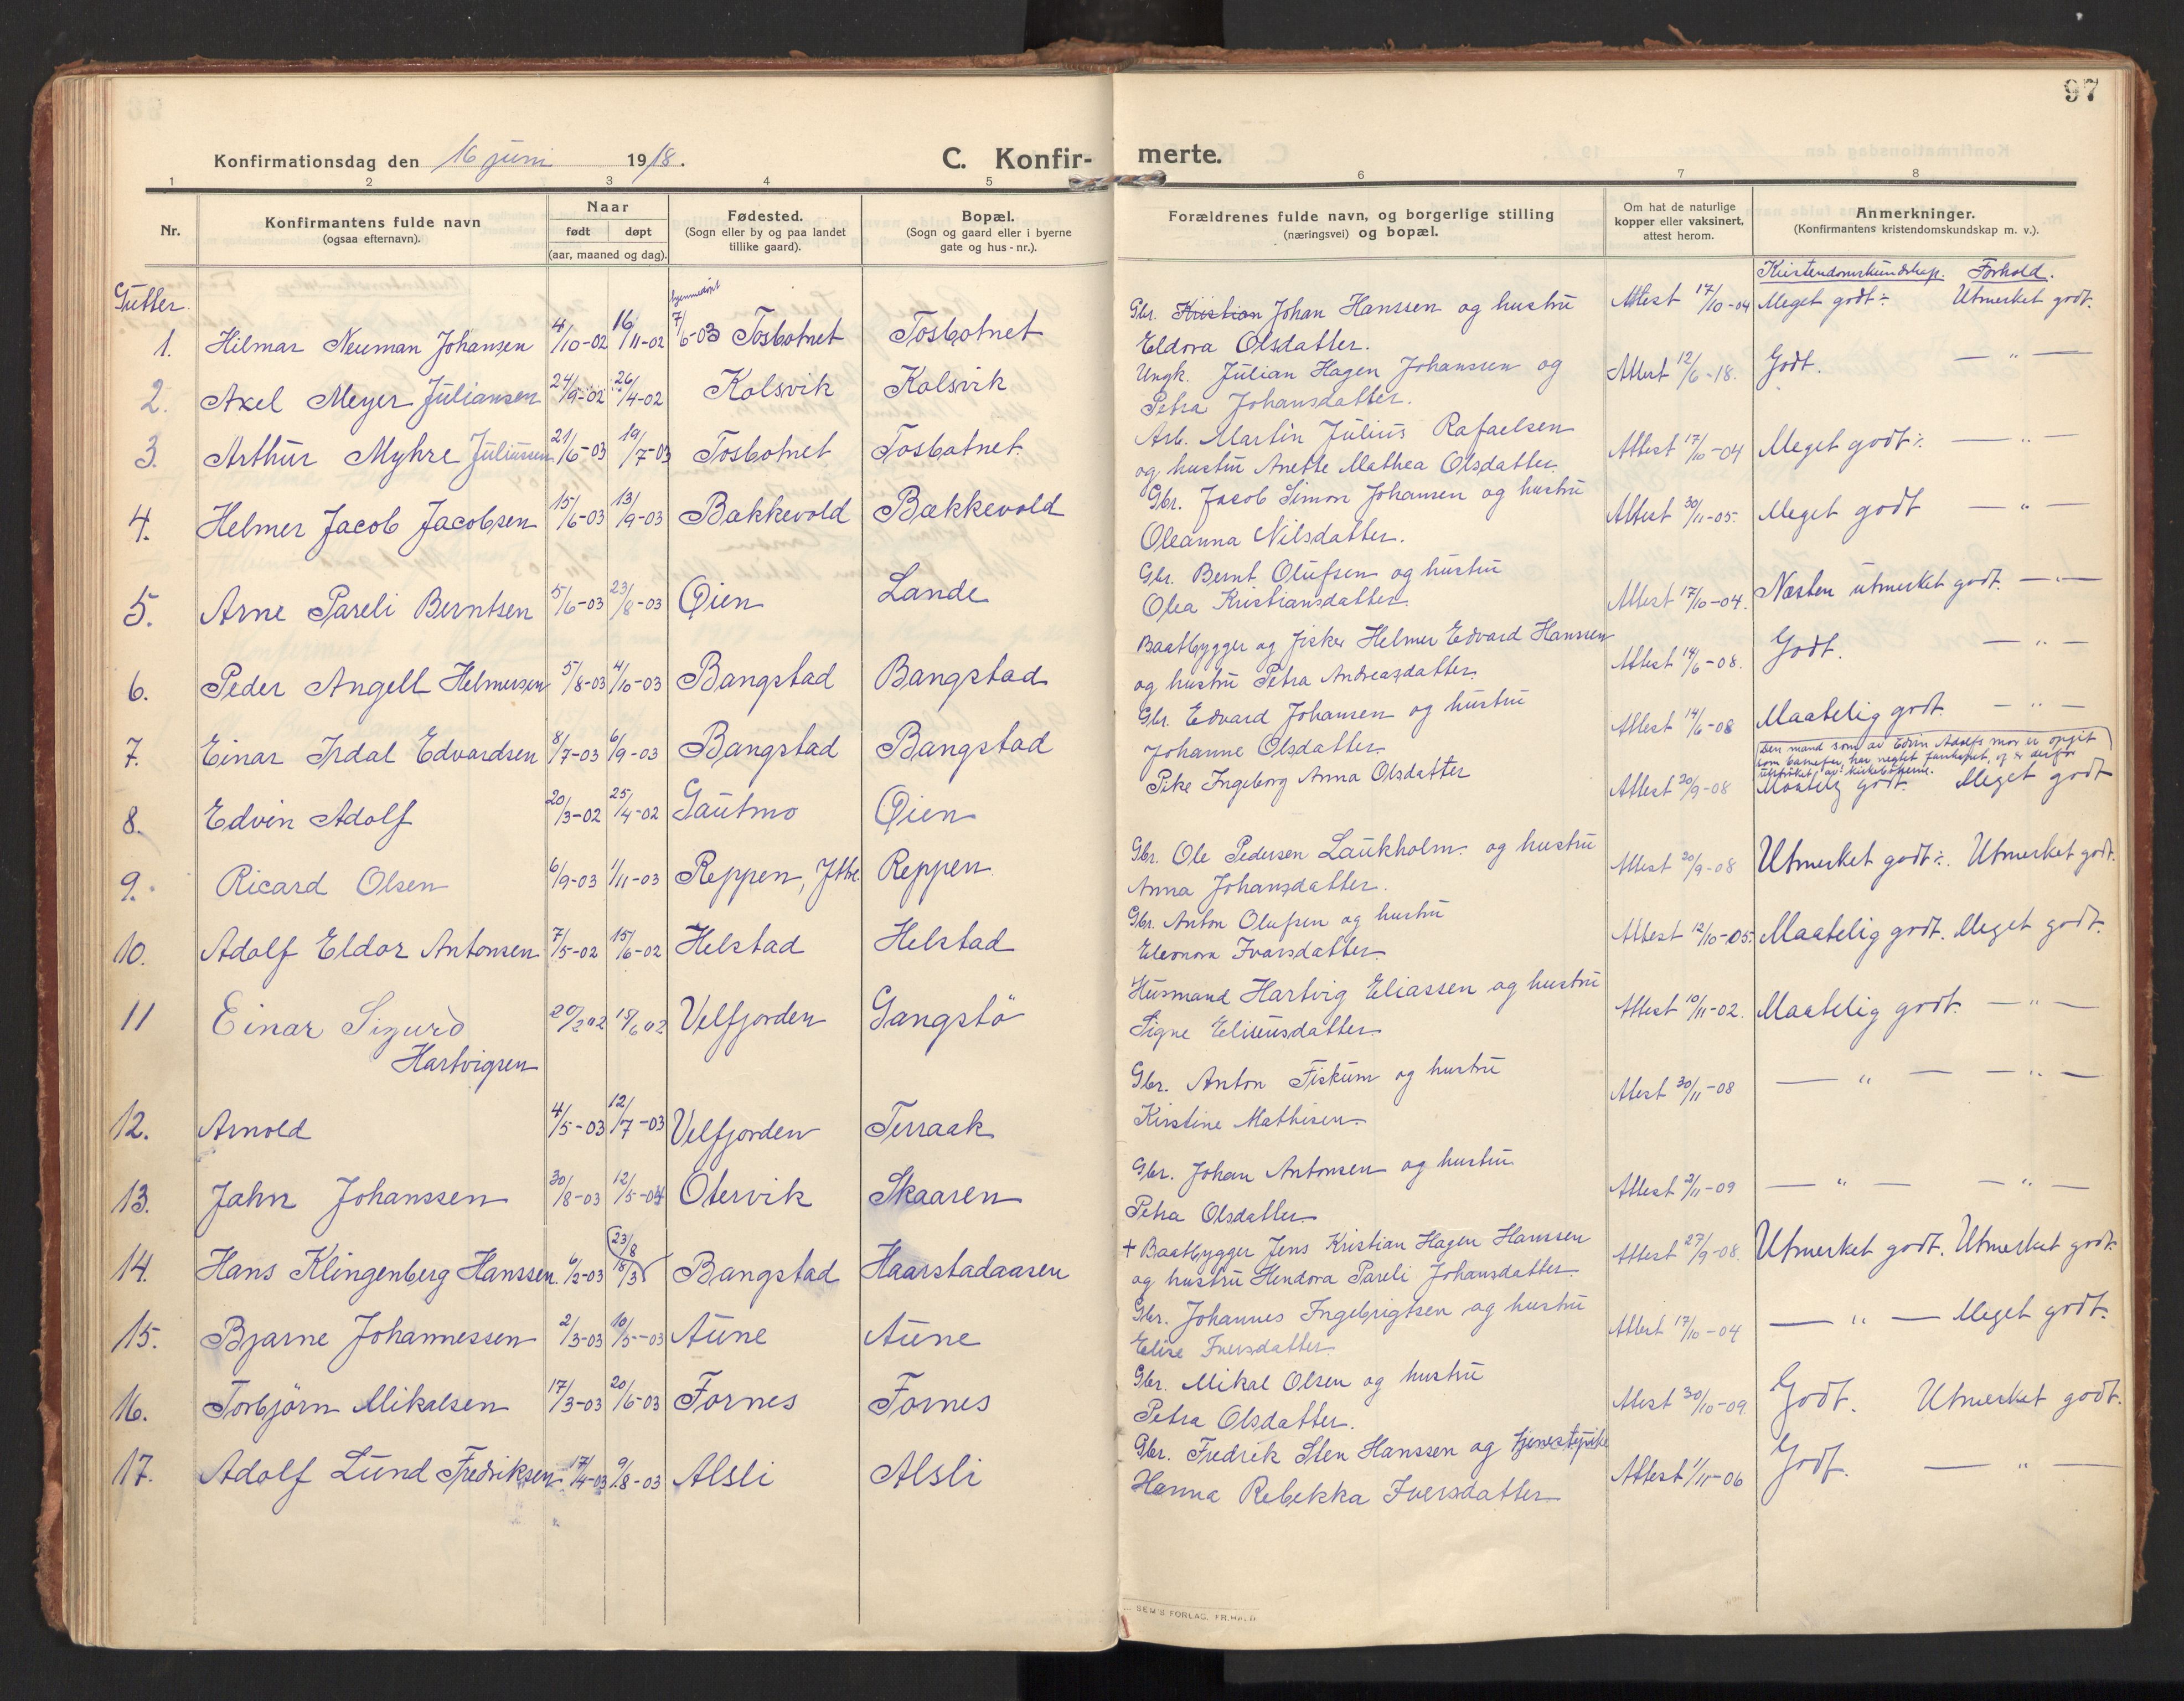 97
Konfirmationsdag den 16 juni 1918.
C. Konfir- merte.
1 2 3 4 5 6 7 8
Nr.
Konfirmantens fulde navn
(ogsaa efternavn).
Naar
født døpt
(aar, maaned og dag).
Fødested.
(Sogn eller by og paa landet
tillike gaard).
Bopæl.
(Sogn og gaard eller i byerne
gate og hus-nr.).
Forældrenes fulde navn, og borgerlige stilling
(næringsvei) og bopæl.
Om hat de naturlige
kopper eller vaksinert,
attest herom.
Anmerkninger.
(Konfirmantens kristendomskundskap m. v.).
Kristendomskundskap. Forhold.
Gutter.
hjemmedøpt
1. Hilmar Neuman Johansen 4/10-02 16/11-02 7/6-03 Tosbotnet Tosbotnet
Gbr. Kristian Johan Hanssen og hustru
Eldora Olsdatter.
Attest 17/10-04 Meget godt ÷ Utmerket godt.
2. Axel Meyer Juliansen 24/9-02 26/4-02 Kolsvik Kolsvik
Ungk. Julian Hagen Johanssen og
Petra Johansdatter.
Attest 12/6-18. Godt. — " —
3. Arthur Myhre Juliussen 21/6-03 19/7-03 Tosbotnet Tosbotnet.
Arb. Martin Julius Rafaelsen
og hustru Anette Mathea Olsdatter.
Attest 17/10-04 Meget godt ÷ — " —
4. Helmer Jacob Jacobsen 15/6-03 13/9-03 Bakkevold Bakkevold
Gbr. Jacob Simon Johansen og hustru
Oleanna Nilsdatter.
Attest 30/11-05. Meget godt — " —
5. Arne Pareli Berntsen 5/6-03 23/8-03 Øien Lande
Gbr. Bernt Olufsen og hustru
Olea Kristiansdatter.
Attest 17/10-04. Næsten utmerket godt. — " —
6. Peder Angell Helmersen 5/8-03 4/10-03 Bangstad Bangstad
Baatbygger og fisker Helmer Edvard Hanssen
og hustru Petra Andreasdatter.
Attest 14/6-08. Godt. — " —
7. Einar Irdal Edvardsen 8/7-03 6/9-03 Bangstad Bangstad
Gbr. Edvard Johansen og hustru
Johanne Olsdatter.
Attest 14/6-08 Maatelig godt. — " —
8. Edvin Adolf 20/3-02 25/4-02 Gautmo Øien
Pike Ingeborg Anna Olsdatter
Attest 20/9-08
Den mand som av Edvin Adolfs mor er opgit
som barnefar, har negtet farskapet, og er derfor
utstrøket av kirkebøkerne.
Maatelig godt. Meget godt
9. Ricard Olsen 6/9-03 1/11-03 Reppen, Ytre. Reppen
Gbr. Ole Pedersen Laukholm og hustru
Anna Johansdatter.
Attest 20/9-08 Utmerket godt ÷. Utmerket godt.
10. Adolf Eldor Antonsen 7/5-02 15/6-02 Helstad Helstad
Gbr. Anton Olufsen og hustru
Eleonora Ivarsdatter.
Attest 12/10-05. Maatelig godt. Meget godt.
11 Einar Sigurd
Hartvigsen
20/2 02 15/6 02 Velfjorden Gangstö
Husmand Hartvig Eliassen og hustru
Signe Eliseusdatter.
Attest 10/11-02. Maatelig godt. — " —
12. Arnold 4/5-03 12/7-03 Velfjorden Terraak
Gbr. Anton Fiskum og hustru
Kirstine Mathisen.
Atest 30/11-08 — " — — " —
13. Jahn Johanssen 30/8-03 12/5-04 Otervik Skaaren
Gbr. Johan Antonsen og hustru
Petra Olsdatter.
Attest 2/11-09 — " — — " —
14. Hans Klingenberg Hanssen. 6/2-03 23/8 15/3 Bangstad Haarstadaasen
+ Baatbygger Jens Kristian Hagen Hanssen
og hustru Hendora Pareli Johansdatter.
Attest 27/9-08. Utmerket godt. Utmerket godt.
15. Bjarne Johannessen 2/3-03 10/5-03 Aune Aune
Gbr. Johannes Ingebrigtsen og hustru
Elise Iversdatter.
Attest 17/10-04 — " — Meget godt.
16. Torbjörn Mikalsen 17/3-03 20/6-03 Fornes Fornes
Gbr. Mikal Olsen og hustru
Petra Olsdatter.
Atest 30/10-09. Godt. Utmerket godt.
17. Adolf Lund Fredriksen 17/4-03 9/8-03 Alsli Alsli
Gbr. Fredrik Sten Hanssen og tjenestepike
Hanna Rebekka Iversdatter
Attest 1/11-06 Godt. — " —
SEM'S FORLAG, FR. HALD